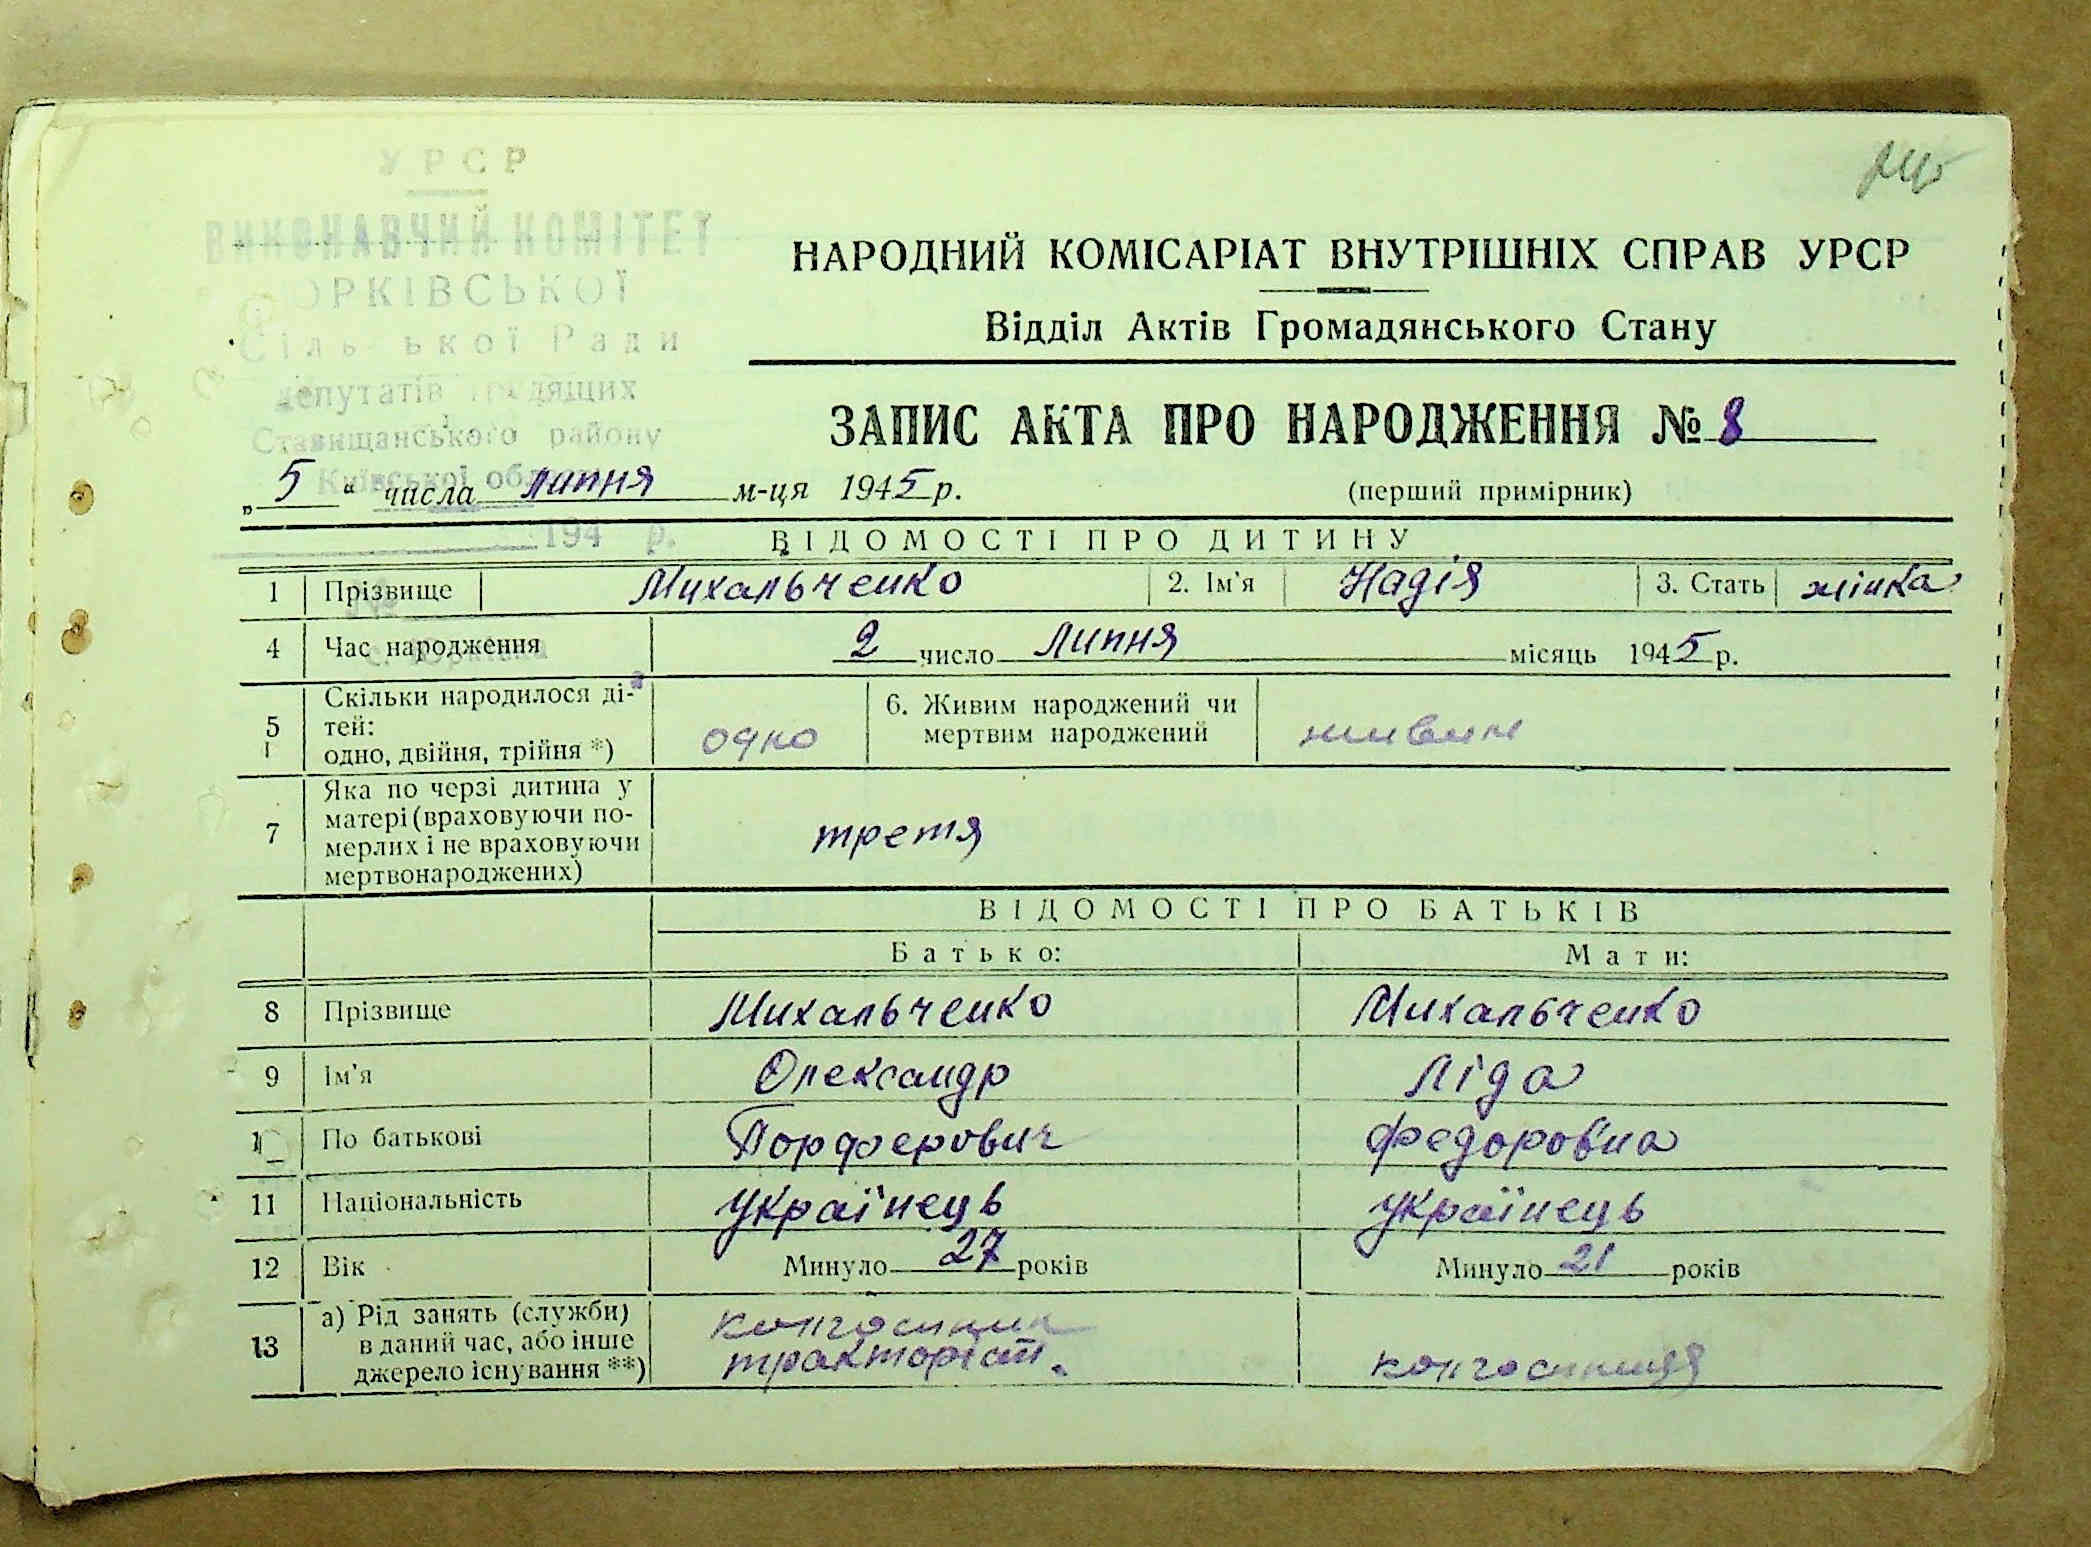 УРСР
ВИКОНАВЧИЙ КОМІТЕТ
ЮРКІВСЬКОЇ
Сільської Ради
депутатів трудящих
Ставищанського району
Київської області
194 р.
с. Юрківка
НАРОДНИЙ КОМІСАРІАТ ВНУТРІШНІХ СПРАВ УРСР
Відділ Актів Громадянського Стану
ЗАПИС АКТА ПРО НАРОДЖЕННЯ № 8
„5“ числа липня м-ця 1945 р. (перший примірник)
ВІДОМОСТІ ПРО ДИТИНУ
1 Прізвище Михальченко 2. Ім'я Надія 3. Стать жінка
4 Час народження 2 число липня місяць 1945 р.
5 Скільки народилося ді-
тей:
одно, двійня, трійня *) одно
6. Живим народжений чи
мертвим народжений живим
7 Яка по черзі дитина у
матері (враховуючи по-
мерлих і не враховуючи
мертвонароджених) третя
ВІДОМОСТІ ПРО БАТЬКІВ
Батько: Мати:
8 Прізвище Михальченко Михальченко
9 Ім'я Олександр Ліда
10 По батькові Порферович Федоровна
11 Національність Українець Українець
12 Вік Минуло 27 років Минуло 21 років
13 а) Рід занять (служби)
в даний час, або інше
джерело існування **)
колгоспник
тракторіст. колгоспниця